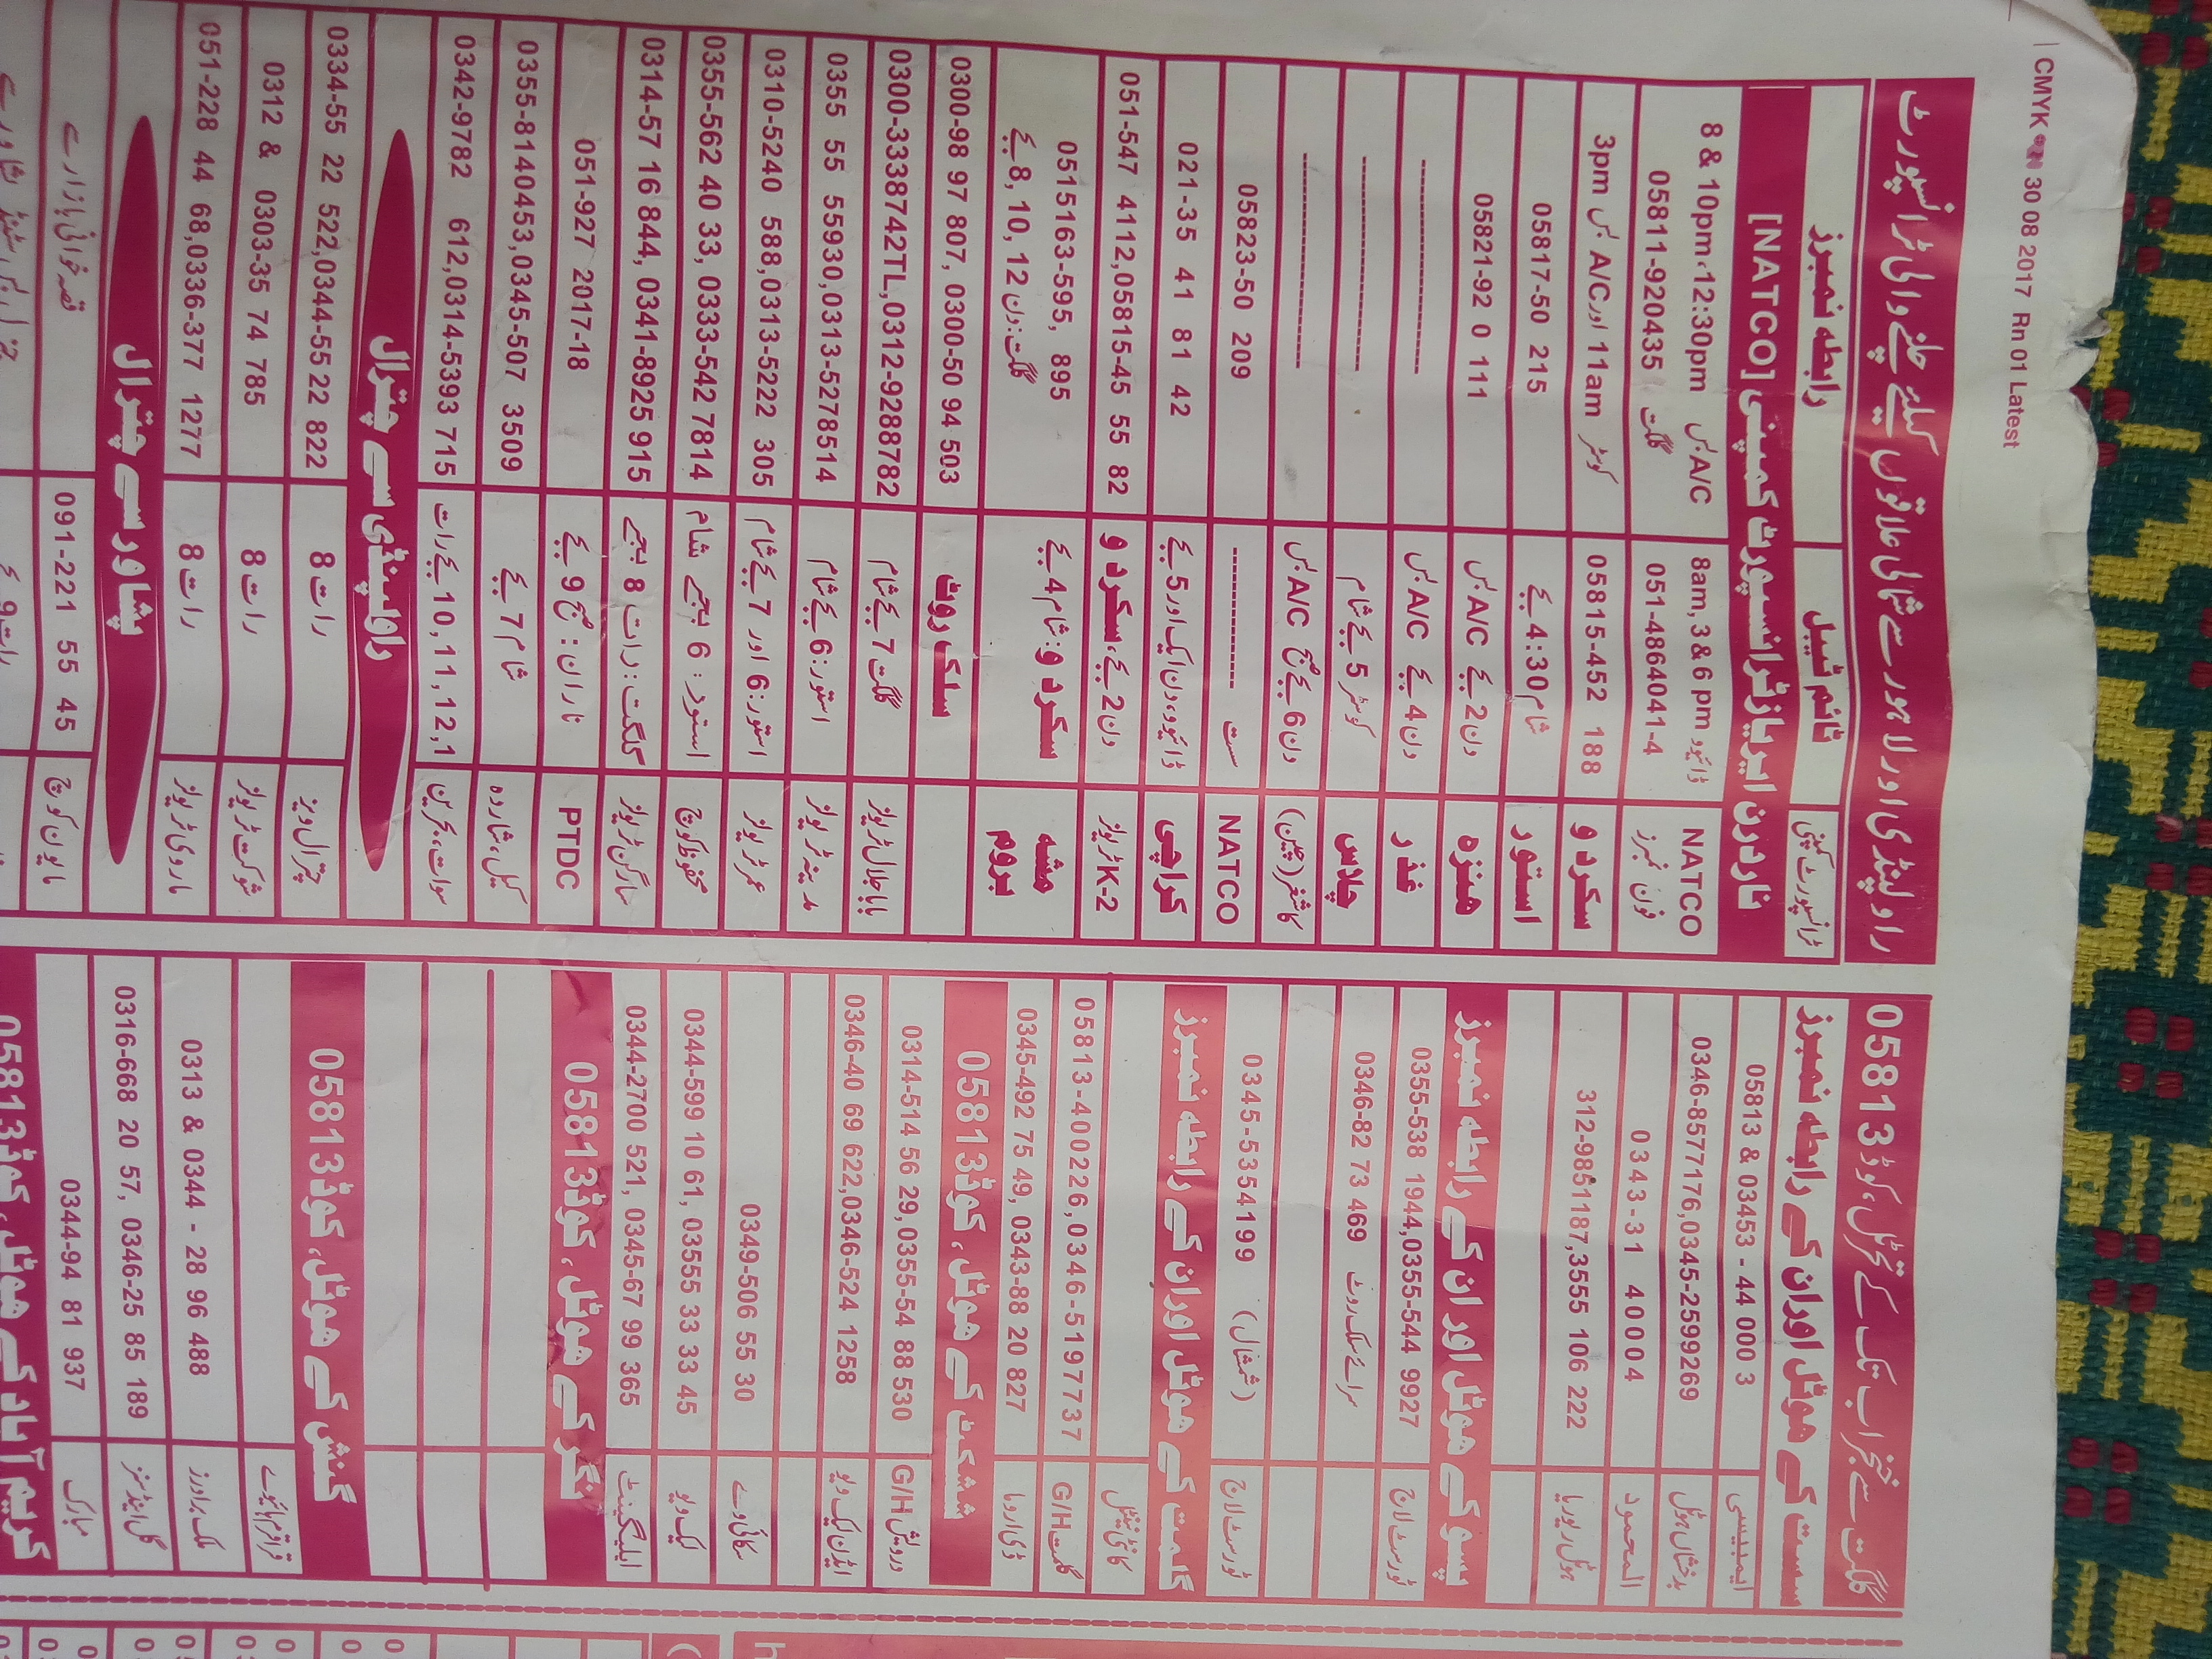 CMYK 30 08 2017 Rn 01 Latest
راولپنڈی اور لاہور سے شمالی علاقوں کیلئے چلنے والی ٹرانسپورٹ
ٹرانسپورٹ کمپنی ٹائم ٹیبل رابطہ نمبرز
ناردرن ایریاز ٹرانسپورٹ کمپنی [NATCO]
NATCO 8am, 3 & 6 pm ڈائیوو A/C بس 8 & 10pm، 12:30pm
فون نمبرز 051-4864041-4 گلگت 05811-920435
سکردو 05815-452 188 کوسٹر 11am اور A/C بس 3pm
استور شام 4:30 بجے 05817-50 215
ہنزہ دن 2 بجے A/C بس 05821-92 0 111
غذر دن 4 بجے A/C بس ---------------
چلاس کوسٹر 5 بجے شام ---------------
کاشغر (چین) دن 6 بجے صبح A/C بس ---------------
NATCO سست ---------- 05823-50 209
کراچی ڈائیوو، دن ایک اور 5 بجے 021-35 41 81 42
K-2 ٹریولز دن 2 بجے، سکردو و 051-547 4112,05815-45 55 82
مشہ بروم سکردو: شام 4 بجے 0515163-595, 895
گلگت: دن 8, 10, 12 بجے
سلک روٹ 0300-98 97 807, 0300-50 94 503
بابا جلال ٹریولز گلگت 7 بجے شام 0300-3338742TL,0312-9288782
مدینہ ٹریولز استور: 6 بجے شام 0355 55 55930,0313-5278514
عمر ٹریولز استور: 6 اور 7 بجے شام 0310-5240 588,0313-5222 305
محفوظ کوچ استور: 6 بجے شام 0355-562 40 33, 0333-542 7814
سارگن ٹریولز گلگت: رات 8 بجے 0314-57 16 844, 0341-8925 915
PTDC ناران: صبح 9 بجے 051-927 2017-18
کیل، شاردہ شام 7 بجے 0355-8140453,0345-507 3509
سوات، بحرین 10,11,12,1 بجے رات 0342-9782 612,0314-5393 715
راولپنڈی سے چترال
چترال ویز رات 8 0334-55 22 522,0344-55 22 822
شوکت ٹریولز رات 8 0312 & 0303-35 74 785
ماروی ٹریولز رات 8 051-228 44 68,0336-377 1277
پشاور سے چترال
ہمایون کوچ 091-221 55 45 قصہ خوانی بازار سے
گلگت سے خنجراب تک کے ہوٹل، کوڈ 05813
سست کے ہوٹل اور ان کے رابطہ نمبرز
ایمبیسی 05813 & 03453 - 44 000 3
بدخشاں ہوٹل 0346-8577176,0345-2599269
المحمود 0343-31 40004
ہوٹل ریوریا 312-9851187,3555 106 222
پسو کے ہوٹل اور ان کے رابطہ نمبرز
ٹورسٹ لاج 0355-538 1944,0355-544 9927
سرائے سلک روٹ 0346-82 73 469
ٹورسٹ لاج (شمشال) 0345-5354199
گلمت کے ہوٹل اور ان کے رابطہ نمبرز
کانٹی نینٹل
گلمت G/H 05813-400226,0346-5197737
ڈی اروبا 0345-492 75 49, 0343-88 20 827
ششکٹ کے ہوٹل، کوڈ 05813
درویش G/H 0314-514 56 29,0355-54 88 530
ایڈن لیک ویو 0346-40 69 622,0346-524 1258
سکائی وے 0349-506 55 30
لیک ویو 0344-599 10 61, 03555 33 33 45
ایلیگینٹ 0344-2700 521, 0345-67 99 365
نگر کے ہوٹل، کوڈ 05813
گنش کے ہوٹل، کوڈ 05813
قراقرم ہائیوے
ملک برادرز 0313 & 0344 - 28 96 488
گل اینڈ سنز 0316-668 20 57, 0346-25 85 189
مبارک 0344-94 81 937
کریم آباد کے ہوٹل، کوڈ 05813